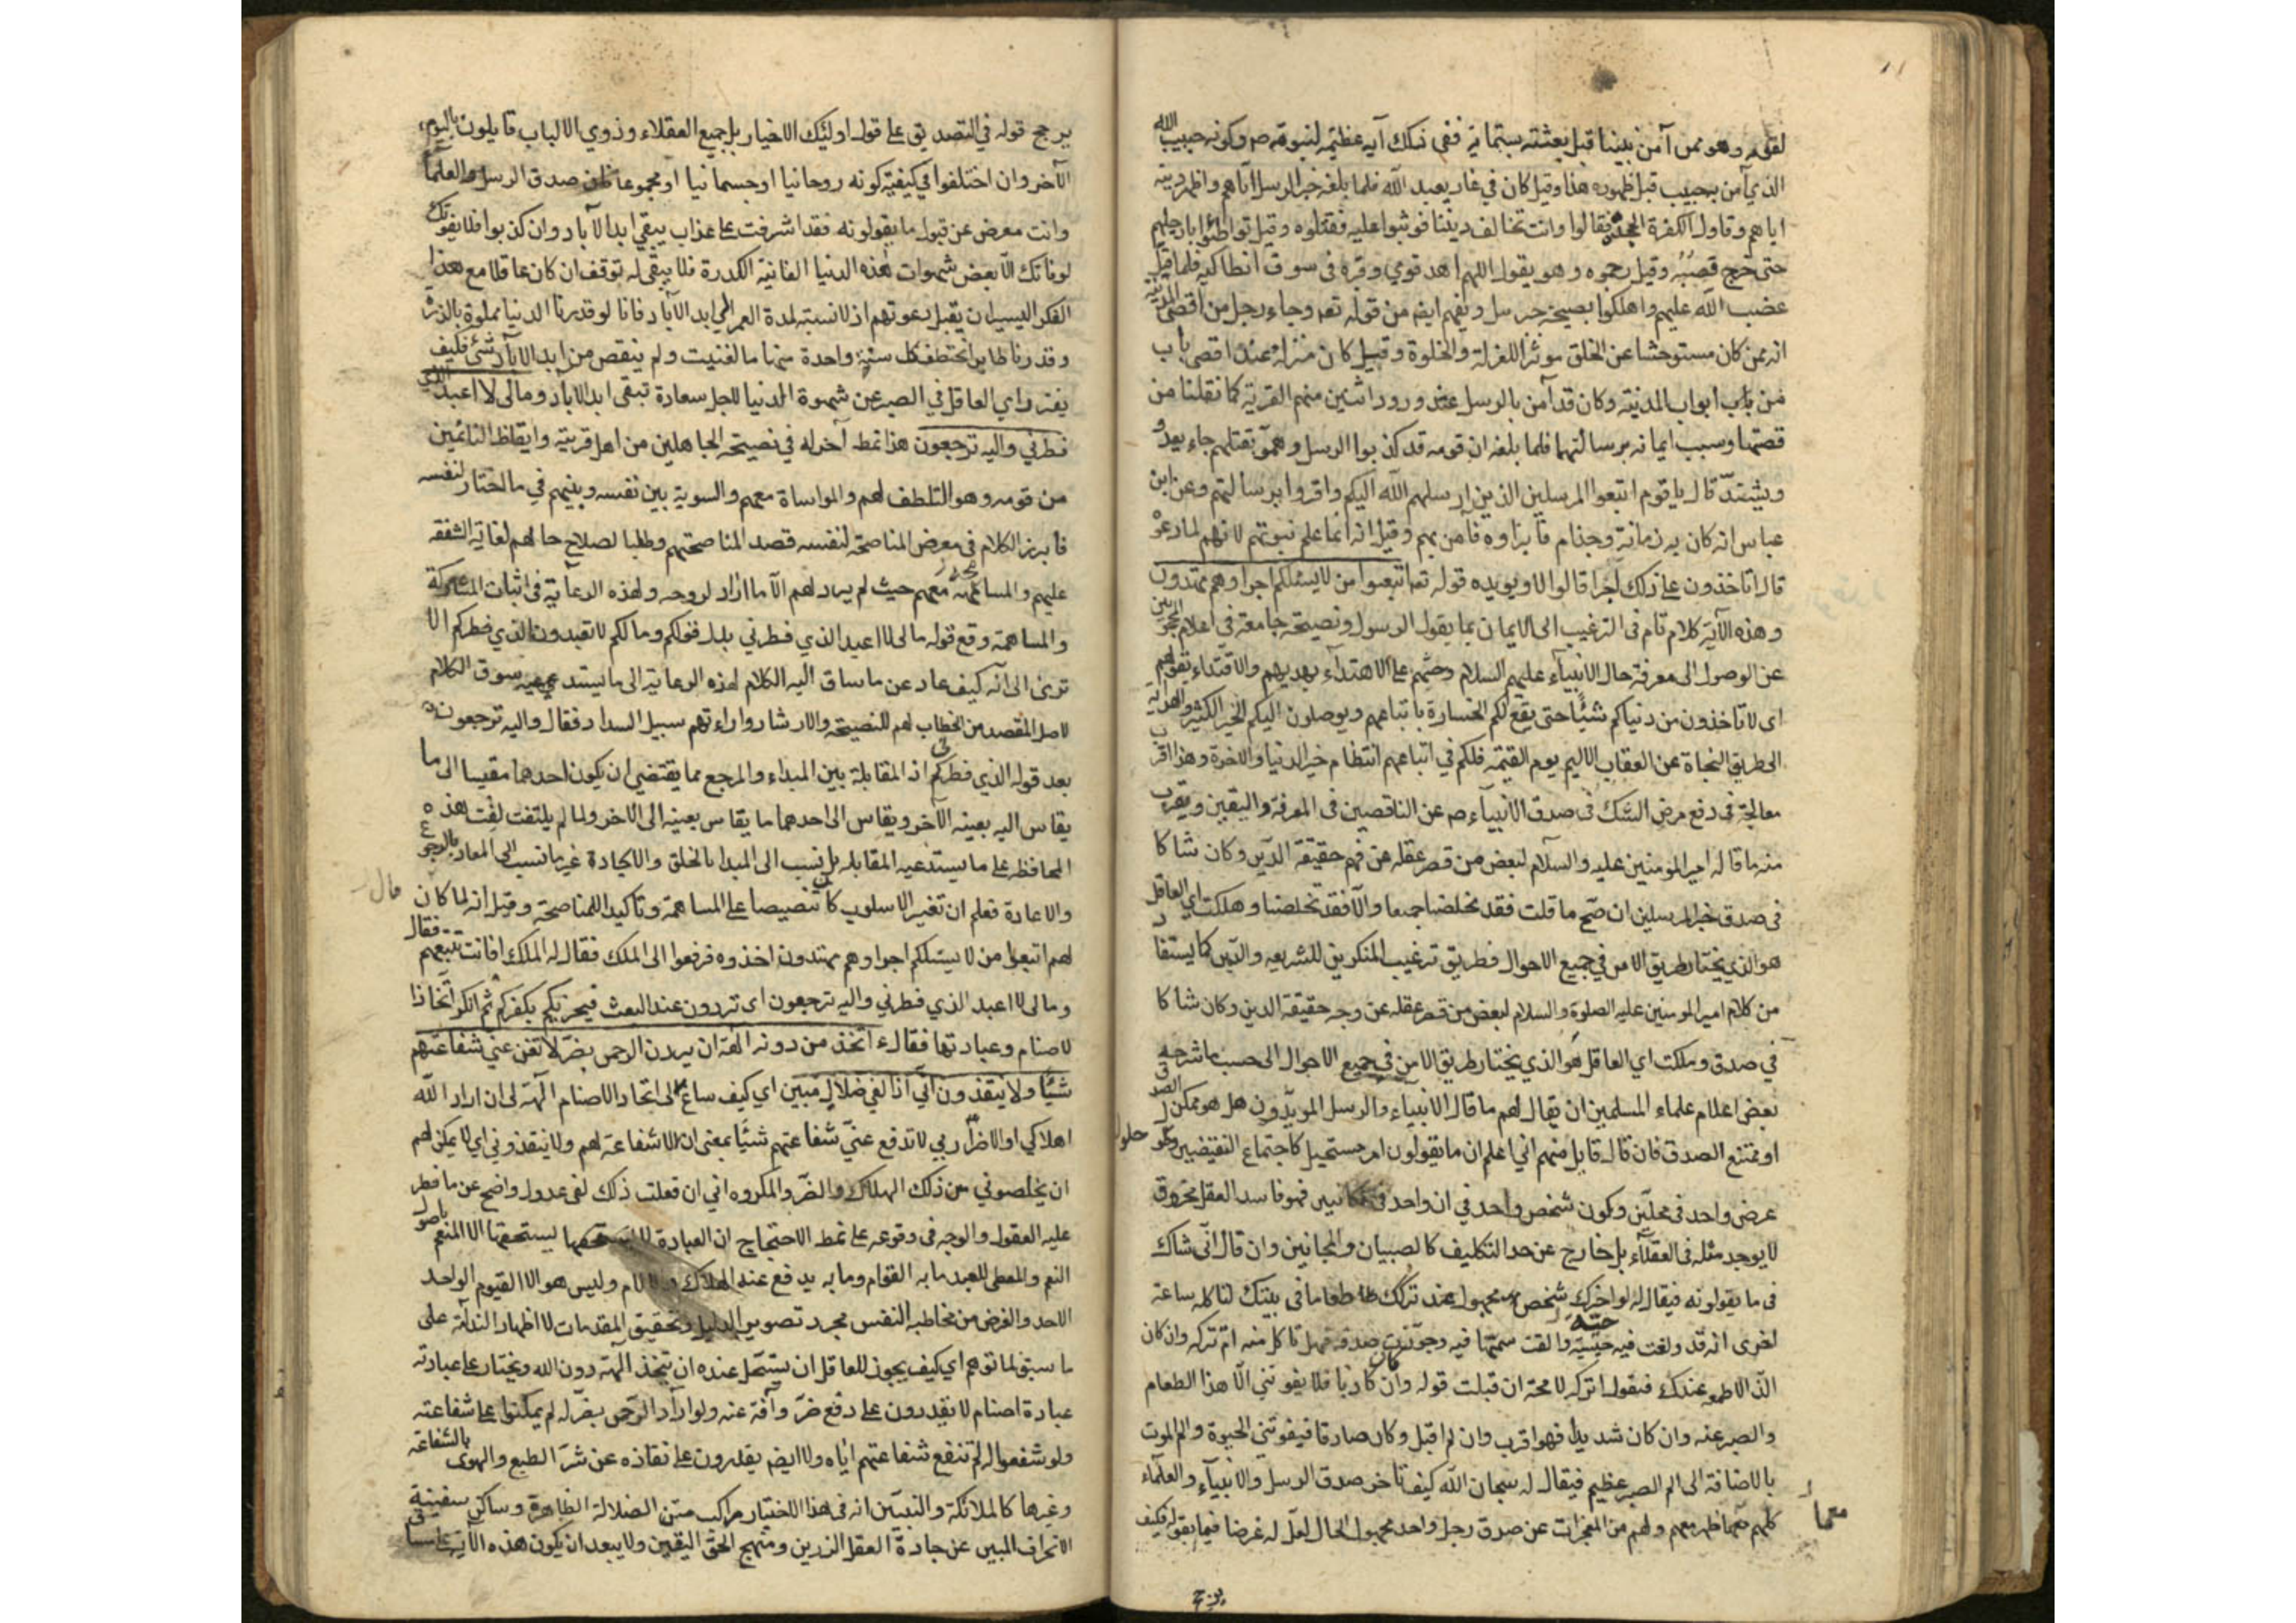 لقومه وهو ممن آمن بنبينا قبل بعثته بستماية ففى ذلك آية عظيمة لنبوته ص وكونه حبيب الله
الذي آمن به حبيب قبل ظهوره هذا وقيل كان في غار يعبد الله فلما بلغه خبر الرسل اتاهم واظهر دينه
اياهم وقاول الكفرة فقالوا وانت تخالف ديننا فوثبوا عليه فقتلوه وقيل تواطئوا بارجلهم
حتى خرج قصبه وقيل رجموه وهو يقول اللهم اهد قومي وقبره فى سوق انطاكيه فلما قتل
غضب الله عليهم واهلكوا بصيحة جبرئيل ويفهم ايضا من قوله تعه وجاء رجل من اقصى المدينة
انه ممن كان مستوحشا عن الخلق موثرا للعزلة والخلوة وقيل كان منزله عند اقصى باب
من باب ابواب المدينة وكان قد آمن بالرسل عند ورود اثنين منهم القرية كما نقلنا من
قصتها وسبب ايمانه برسالتهما فلما بلغه ان قومه قد كذبوا الرسل وهموا بقتلهم جاء يعدو
ويشتد قال يا قوم اتبعوا المرسلين الذين ارسلهم الله اليكم واقروا برسالتهم وعن ابن
عباس انه كان به زمانة وجذام فابراوه فامن بهم وقيل انه انما علم نبوتهم لانهم لما دعوه
قال اتاخذون على ذلك اجرا قالوا لا ويويده قوله تعه اتبعوا من لا يسئلكم اجرا وهم مهتدون
وهذه الآية كلام تام فى الترغيب الى الايمان بما يقول الرسول ونصيحة جامعة فى اعلام المحجوبين
عن الوصول الى معرفة حال الانبيآء عليهم السلام وحثهم على الاهتدآء بهديهم والاقتداء بقولهم
اى لا تاخذون من دنياكم شيئا حتى يقع لكم الخسارة باتباعهم ويوصلون اليكم الخير الكثير والهداية
الى طريق النجاة عن العقاب الاليم يوم القيمة فلكم في اتباعهم انتظام خير الدنيا والاخرة وهذا اقرب
معالجة فى دفع مرض الشك فى صدق الانبيآء ص عن الناقصين فى المعرفة واليقين ويقرب
منه ما قاله امير المومنين عليه والسلام لبعض من قصر عقله عن فهم حقيقة الدين وكان شاكا
فى صدق خبر المرسلين ان صح ما قلت فقد تخلصنا جميعا والا فقد تخلصنا وهلكت اي العاقل
هو الذي يختار طريق الامن في جميع الاحوال فطريق ترغيب المنكرين للشريعه والدين كما يستفاد
من كلام امير المومنين عليه الصلوة والسلام لبعض من قصر عقله عن وجه حقيقة الدين وكان شاكا
في صدق وهلكت اي العاقل هو الذي يختار طريق الامن في جميع الاحوال الى حسب ما شرحه
بعض اعلام علماء المسلمين ان يقال لهم ما قال الانبياء والرسل المويدون هل هو ممكن الصدق
او ممتنع الصدق فان قال قايل منهم اني اعلم ان ما يقولون امر مستحيل كاجتماع النقيضين وكحلول
عرض واحد فى محلين وكون شخص واحد في ان واحد فى مكانيين فهو فاسد العقل محروق
لا يوجد مثله فى العقلآء بل خارج عن حد التكليف كالصبيان والمجانين وان قال انى شاك
فى ما يقولونه فيقال له لو اخبرك شخص مجهول عند تركك طعاما فى بيتك لتاكله ساعة
اخرى انه قد ولغت فيه حية والقت سمها فيه وجوزت صدقه فهل تاكل منه ام تركه وان كان
الذ الاطعمه عندك فيقول اتركه لا محة ان قبلت قوله وان كان كاذبا فلا يفوتنى الا هذا الطعام
والصبر عنه وان كان شديدا فهو اقرب وان لم اقبل وكان صادقا فيفوتنى الحيوة والم الموت
بالاضافة الى الم الصبر عظيم فيقال له سبحان الله كيف تاخر صدق الرسل والانبيآء والعلمآء
كلهم مع ما ظهر معهم ولهم من المعجزات عن صدق رجل واحد مجهول الحال لعل له غرضا فيما يقوله فكيف
يرجح
يرجح قوله في التصديق على قول اولئك الاخيار بل جميع العقلاء وذوي الالباب قايلون باليوم
الآخر وان اختلفوا في كيفية كونه روحانيا او جسمانيا او مجموعا فان صدق الرسل والعلما
وانت معرض عن قبول ما يقولونه فقد اشرفت على عذاب يبقى ابد الآباد وان كذبوا فلا يفوتك
لوفاتك الا بعض شهوات هذه الدنيا الفانية الكدرة فلا يبقى له توقف ان كان عاقلا مع هذا
الفكر اليسير ان يقبل دعوتهم اذ لا نسبة لمدة العمر الى ابد الآباد فانا لو قدرنا الدنيا مملوة بالذرة
وقدرنا طايرا يختطف كل سنة واحدة منها ما لفنيت ولم ينقص من ابد الاباد شئ فكيف
يفتر راي العاقل في الصبر عن شهوة الدنيا لاجل سعادة تبقى ابد الاباد ومالى لا اعبد الذي
فطرني واليه ترجعون هذا نمط آخر له في نصيحة الجاهلين من اهل قريته وايقاظ النائمين
من قومه وهو التلطف لهم والمواساة معهم والسوية بين نفسه وبينهم في ما اختار لنفسه
فابرز الكلام فى معرض المناصحة لنفسه قصد المناصحتهم وطلبا لصلاح حالهم لغاية الشفقه
عليهم والمساهمة معهم حيث لم يرد لهم الا ما اراد لروحه ولهذه الرعاية فى اثبات المشاركة
والمساهمة وقع قوله مالى لا اعبد الذي فطرني بدل قولكم ومالكم لا تعبدون الذي فطركم الا
ترى الى انه كيف عاد عن ما ساق اليه الكلام لهذه الرعاية الى ما يستدعيه سوق الكلام
لاصل المقصد من الخطاب لهم للنصيحة والارشاد واراءتهم سبيل السداد فقال واليه ترجعون
بعد قوله الذي فطركم اذ المقابلة بين المبداء والمرجع مما يقتضى ان يكون احدهما مقيسا الى ما
يقاس اليه بعينه الآخر ويقاس الى احدهما ما يقاس بعينه الى الاخر ولما لم يلتفت لفت هذه
المحافظه على ما يستدعيه المقابله بل نسب الى المبدا بالخلق والايجادة غير ما نسب الى المعاد بالرجوع
والاعادة فعلم ان تغير الاسلوب كان تنصيصا على المساهمة وتاكيدا للمناصحة وقيل انه لما كان قال
لهم اتبعوا من لا يسئلكم اجرا وهم مهتدون اخذوه فرفعوا الى الملك فقال له الملك افانت تتبعهم فقال
ومالى لا اعبد الذي فطرني واليه ترجعون اى تردون عند البعث فيجزيكم بكفركم ثم انكر اتخاذ
الاصنام وعبادتها فقال ءاتخذ من دونه الهة ان يردن الرحمن بضر لا تغن عني شفاعتهم
شيئا ولا ينقذون انى اذا لفي ضلال مبين اي كيف ساغ لى اتخاذ الاصنام الهة لى ان اراد الله
اهلاكي او الاضرار بي لا تدفع عني شفاعتهم شيئا بمعنى ان لا شفاعة لهم ولا ينقذوني اي لا يمكن لهم
ان يخلصوني من ذلك الهلاك والضر والمكروه اني ان فعلت ذلك لفى عدول واضح عن ما فطر
عليه العقول والوجه فى وقوعه على نمط الاحتجاج ان العبادة لا يستحقها الا المنعم باصول
النعم والمعطى للعبد ما به القوام وما به يدفع عنه الهلاك والالام وليس هو الا القيوم الواحد
الاحد والغرض من مخاطبه النفس مجرد تصوير الدليل وتحقيق المقدمات لا اظهار الندامة على
ما سبق لما توهم اي كيف يجوز للعاقل ان يستحل عنده ان يتخذ الهة دون الله ويختار على عبادته
عبادة اصنام لا يقدرون على دفع ضر وآفة عنه ولو اراد الرحمن بضر له لم يمكنوا على شفاعته
ولو شفعوا له لم تنفع شفاعتهم اياه ولا ايض يقدرون على نقاذه عن شر الطبع والهوى بالشفاعة
وغيرها كالملائكة والنبيين انه فى هذا الاختيار مراكب متن الضلالة الظاهرة وساكن سفينة
الانحراف المبين عن جادة العقل الزرين ومنهج الحق اليقين ولا يبعد ان يكون هذه الآية